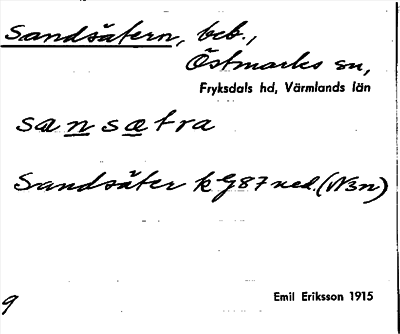 Sandsätern, beb.,
Östmarks sn,
Fryksdals hd, Värmlands län
sansætra
Sandsäter k G 87 ned. (N3n)
Emil Eriksson 1915
9